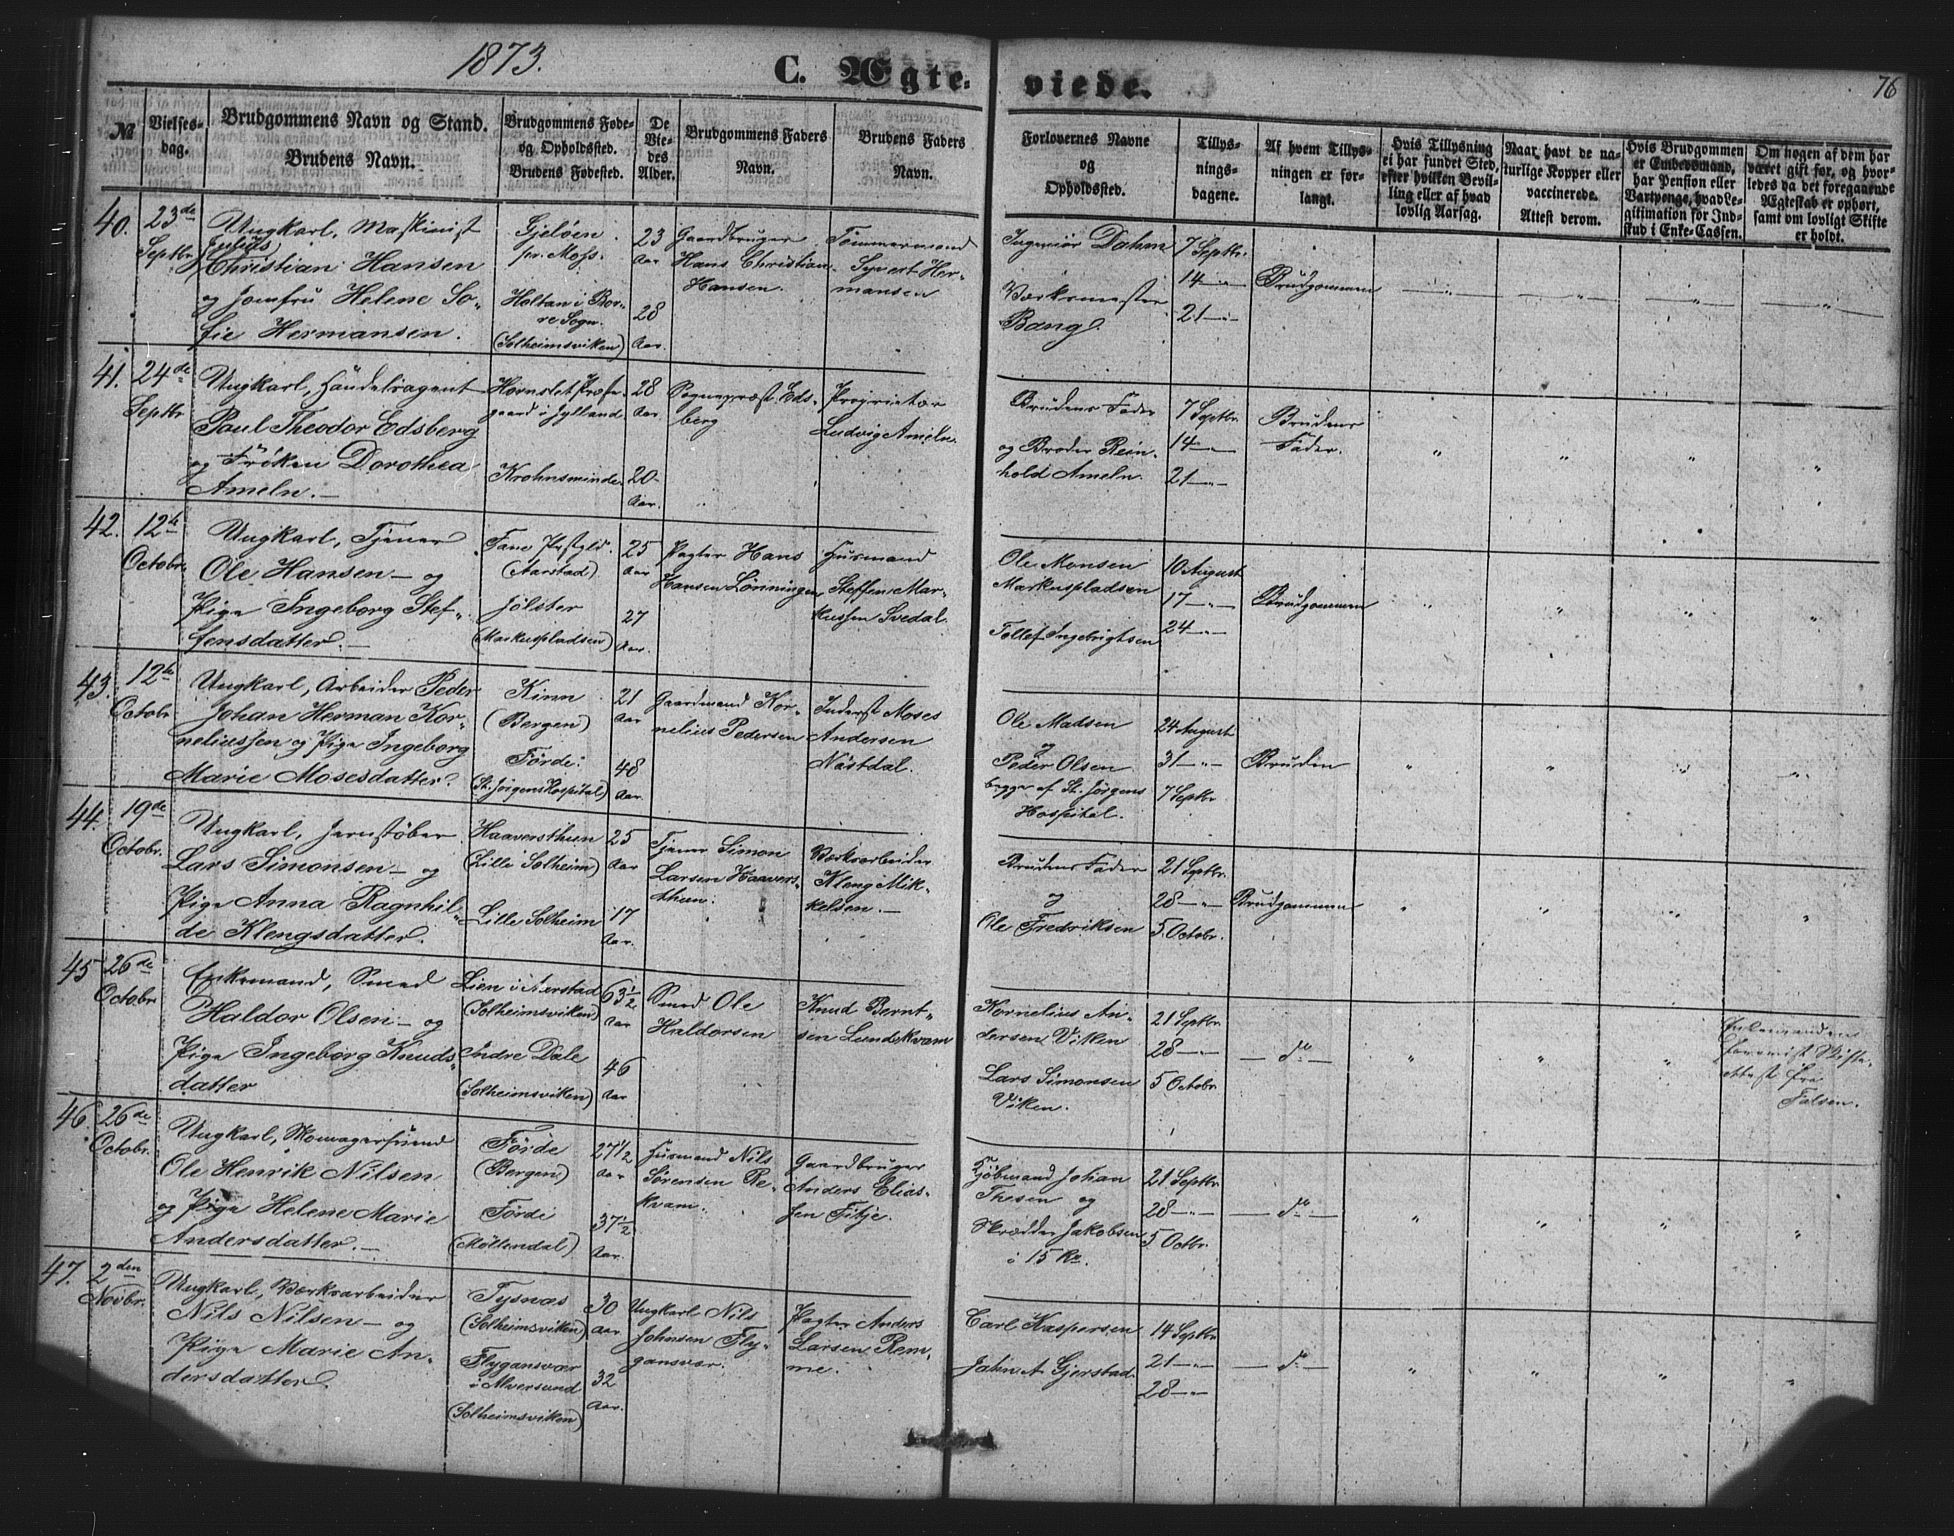 1873.
C. Ægte-
viede.
76
№
Vielses-
dag.
Brudgommens Navn og Stand.
Brudens Navn.
Brudgommens Føde-
og Opholdssted.
Brudens Fødested.
De
Vie-
des
Alder.
Brudgommens Faders
Navn.
Brudens Faders
Navn.
Forlovernes Navne
og
Opholdssted.
Tillys-
nings-
dagene.
Af hvem Tillys-
ningen er for-
langt.
Hvis Tillysning
ei har fundet Sted,
efter hvilken Bevil-
ling eller af hvad
lovlig Aarsag.
Naar havt de na-
turlige Kopper eller
vaccinerede.
Attest derom.
Hvis Brudgommen
er Embedsmand,
har Pension eller
Vartpenge, hvad Le-
gitimation for Ind-
skud i Enke-Cassen.
Om nogen af dem har
været gift før, og hvor-
ledes da det foregaaende
Ægteskab er ophørt,
samt om lovligt Skifte
er holdt.
40.
23de
Septbr.
Ungkarl, Maskinist
Julius
Christian Hansen
og Jomfru Helene So-
fie Hermansen.
Gjeløen
pr. Moss.
Holtan i Bor-
re Sogn.
(Solheimsviken)
23
Aar
28
Aar.
Gaardbruger
Hans Christian
Hansen.
Tømmermand
Syvert Her-
mansen
Ingeniør Dahm
Værksmester
Bang.
7 Septbr.
14 — „ —
21 — „ —
Brudgommen
— „ —
— „ —
— „ —
— „ —
41.
24de
Septbr
Ungkarl, Handelsagent
Paul Theodor Edsberg
og Frøken Dorothea
Ameln. —
Hornslet Præste-
gaard i Jylland
Krohnsminde
28
Aar.
20
Aar.
Sognepræst Eds-
berg
Proprietær
Ludvig Ameln.
Brudens Fader
og Broder Rein-
hold Ameln.
7 Septbr.
14 — „ —
21 — „ —
Brudens
Fader.
„
„
„
„
42.
12te
Octobr.
Ungkarl, Tjener
Ole Hansen — og
Pige Ingeborg Stef-
fensdatter. —
Fane Præstgjld.
(Aarstad)
Jølster
(Markuspladsen)
25
Aar
27
Aar.
Pagter Hans
Hansen Lønningen
Husmand
Steffen Mar-
kussen Svedal.
Ole Monsen
Markuspladsen
Tollef Ingebrigtsen
10 August
17 — „ —
24 — „ —
Brudgommen
„
„
„
„
43.
12te
Octobr.
Ungkarl, Arbeider Peder
Johan Herman Kor-
neliussen og Pige Ingeborg
Marie Mosesdatter.
Kinn
(Bergen)
Førde.
(St. Jørgens Hospital)
21
Aar
48
Aar.
Gaardmand Kor-
nelius Pedersen
Inderst Moses
Andersen
Nøstdal.
Ole Madsen
og
Peder Olsen
begge af St. Jørgens
Hospital.
24 August
31 — „ —
7 Septbr.
Bruden
„
„
„
„
44.
19de
Octobr.
Ungkarl, Jernstøber
Lars Simonsen — og
Pige Anna Ragnhil-
de Klengsdatter.
Haaversthun
(Lille Solheim)
Lille Solheim
25
Aar
17
Aar.
Tjener Simon
Larsen Haavers-
thun.
Værksarbeider
Kleng Mik-
kelsen. —
Brudens Fader
og
Ole Fredriksen
21 Septbr.
28 — „ —
5. Octobr.
Brudgommen
„
„
„
„
45
26de
Octobr.
Enkemand, Smed
Haldor Olsen — og
Pige Ingeborg Knuds-
datter
Lien i Aarstad
(Solheimsviken)
Indre Dale
(Solheimsviken)
63½
Aar
46
Aar
Smed Ole
Haldorsen
Knud Bernt-
sen Lundekvam
Kornelius An-
dersen Viken
Lars Simonsen
Viken.
21 Septbr
28 — „ —
5 Octobr.
— do —
„
„
„
Enkemanden
forevist Skifte-
attest fra
Falsen.
46.
26de
Octobr.
Ungkarl, Skomagersvend
Ole Henrik Nilsen
og Pige Helene Marie
Andersdatter. —
Førde
(Bergen)
Førde
(Møllendal)
27½
Aar
37½
Aar.
Husmand Nils
Sørensen Be-
kvam.
Gaardbruger
Anders Elias-
sen Fitje.
Kjøbmand Johan
Thesen og
Skrædder Jakobsen
i 15 Ro.
21 Septbr.
28 — „ —
5 Octbr.
— do —
„
„
„
„
47.
2den
Novbr.
Ungkarl, Værksarbeider
Nils Nilsen — og
Pige Marie An-
dersdatter.
Tysnæs
(Solheimsviken)
Flygansvær
i Alversund
(Solheimsviken)
30
Aar
32
Aar.
Ungkarl Nils
Johnsen Fly-
gansvær.
Pagter Anders
Larsen Rem-
me.
Carl Kaspersen
John A Gjerstad.
14 Septbr
21 — „ —
28 — „ —
— do —
„
„
„
„